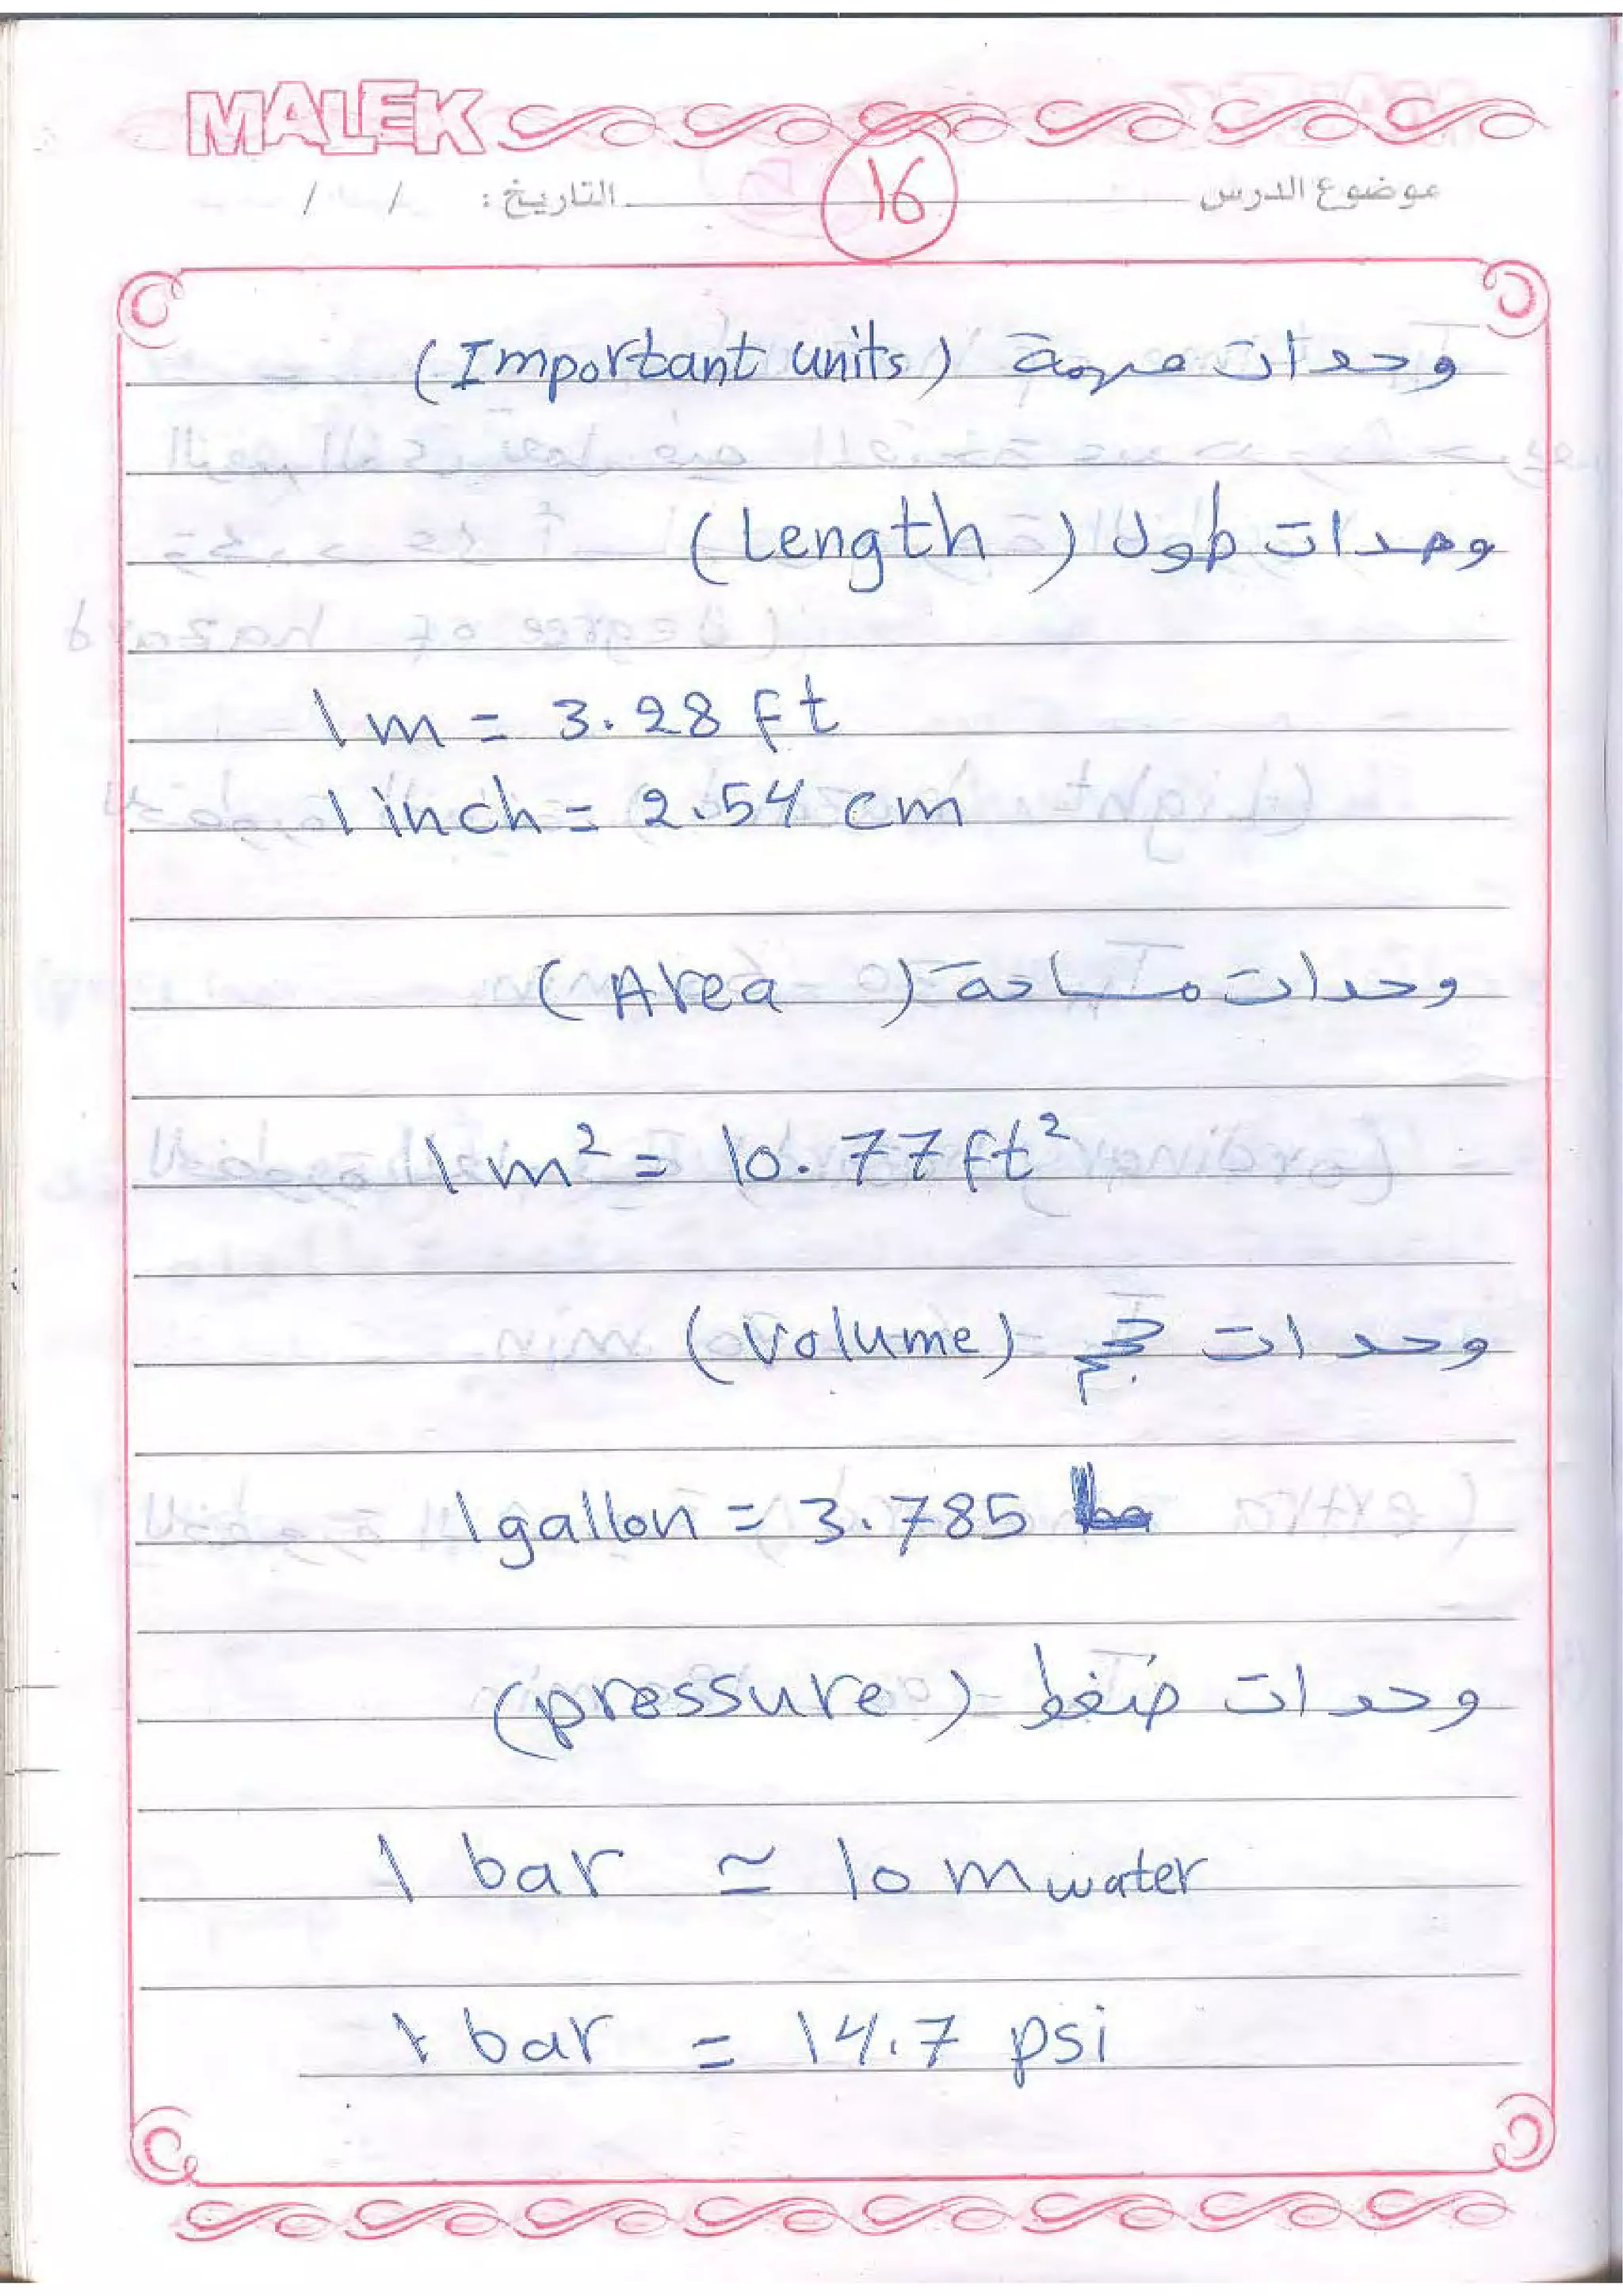 MALEK
موضوع الدرس 16 التاريخ: / /
وحدات مهمة (Important units)
وحدات طول (Length)
1 m = 3.28 ft
1 inch = 2.54 cm
وحدات مساحة (Area)
1 m² = 10.77 ft²
وحدات حجم (volume)
1 gallon = 3.785
وحدات ضغط (pressure)
1 bar ≃ 10 m water
1 bar = 14.7 psi